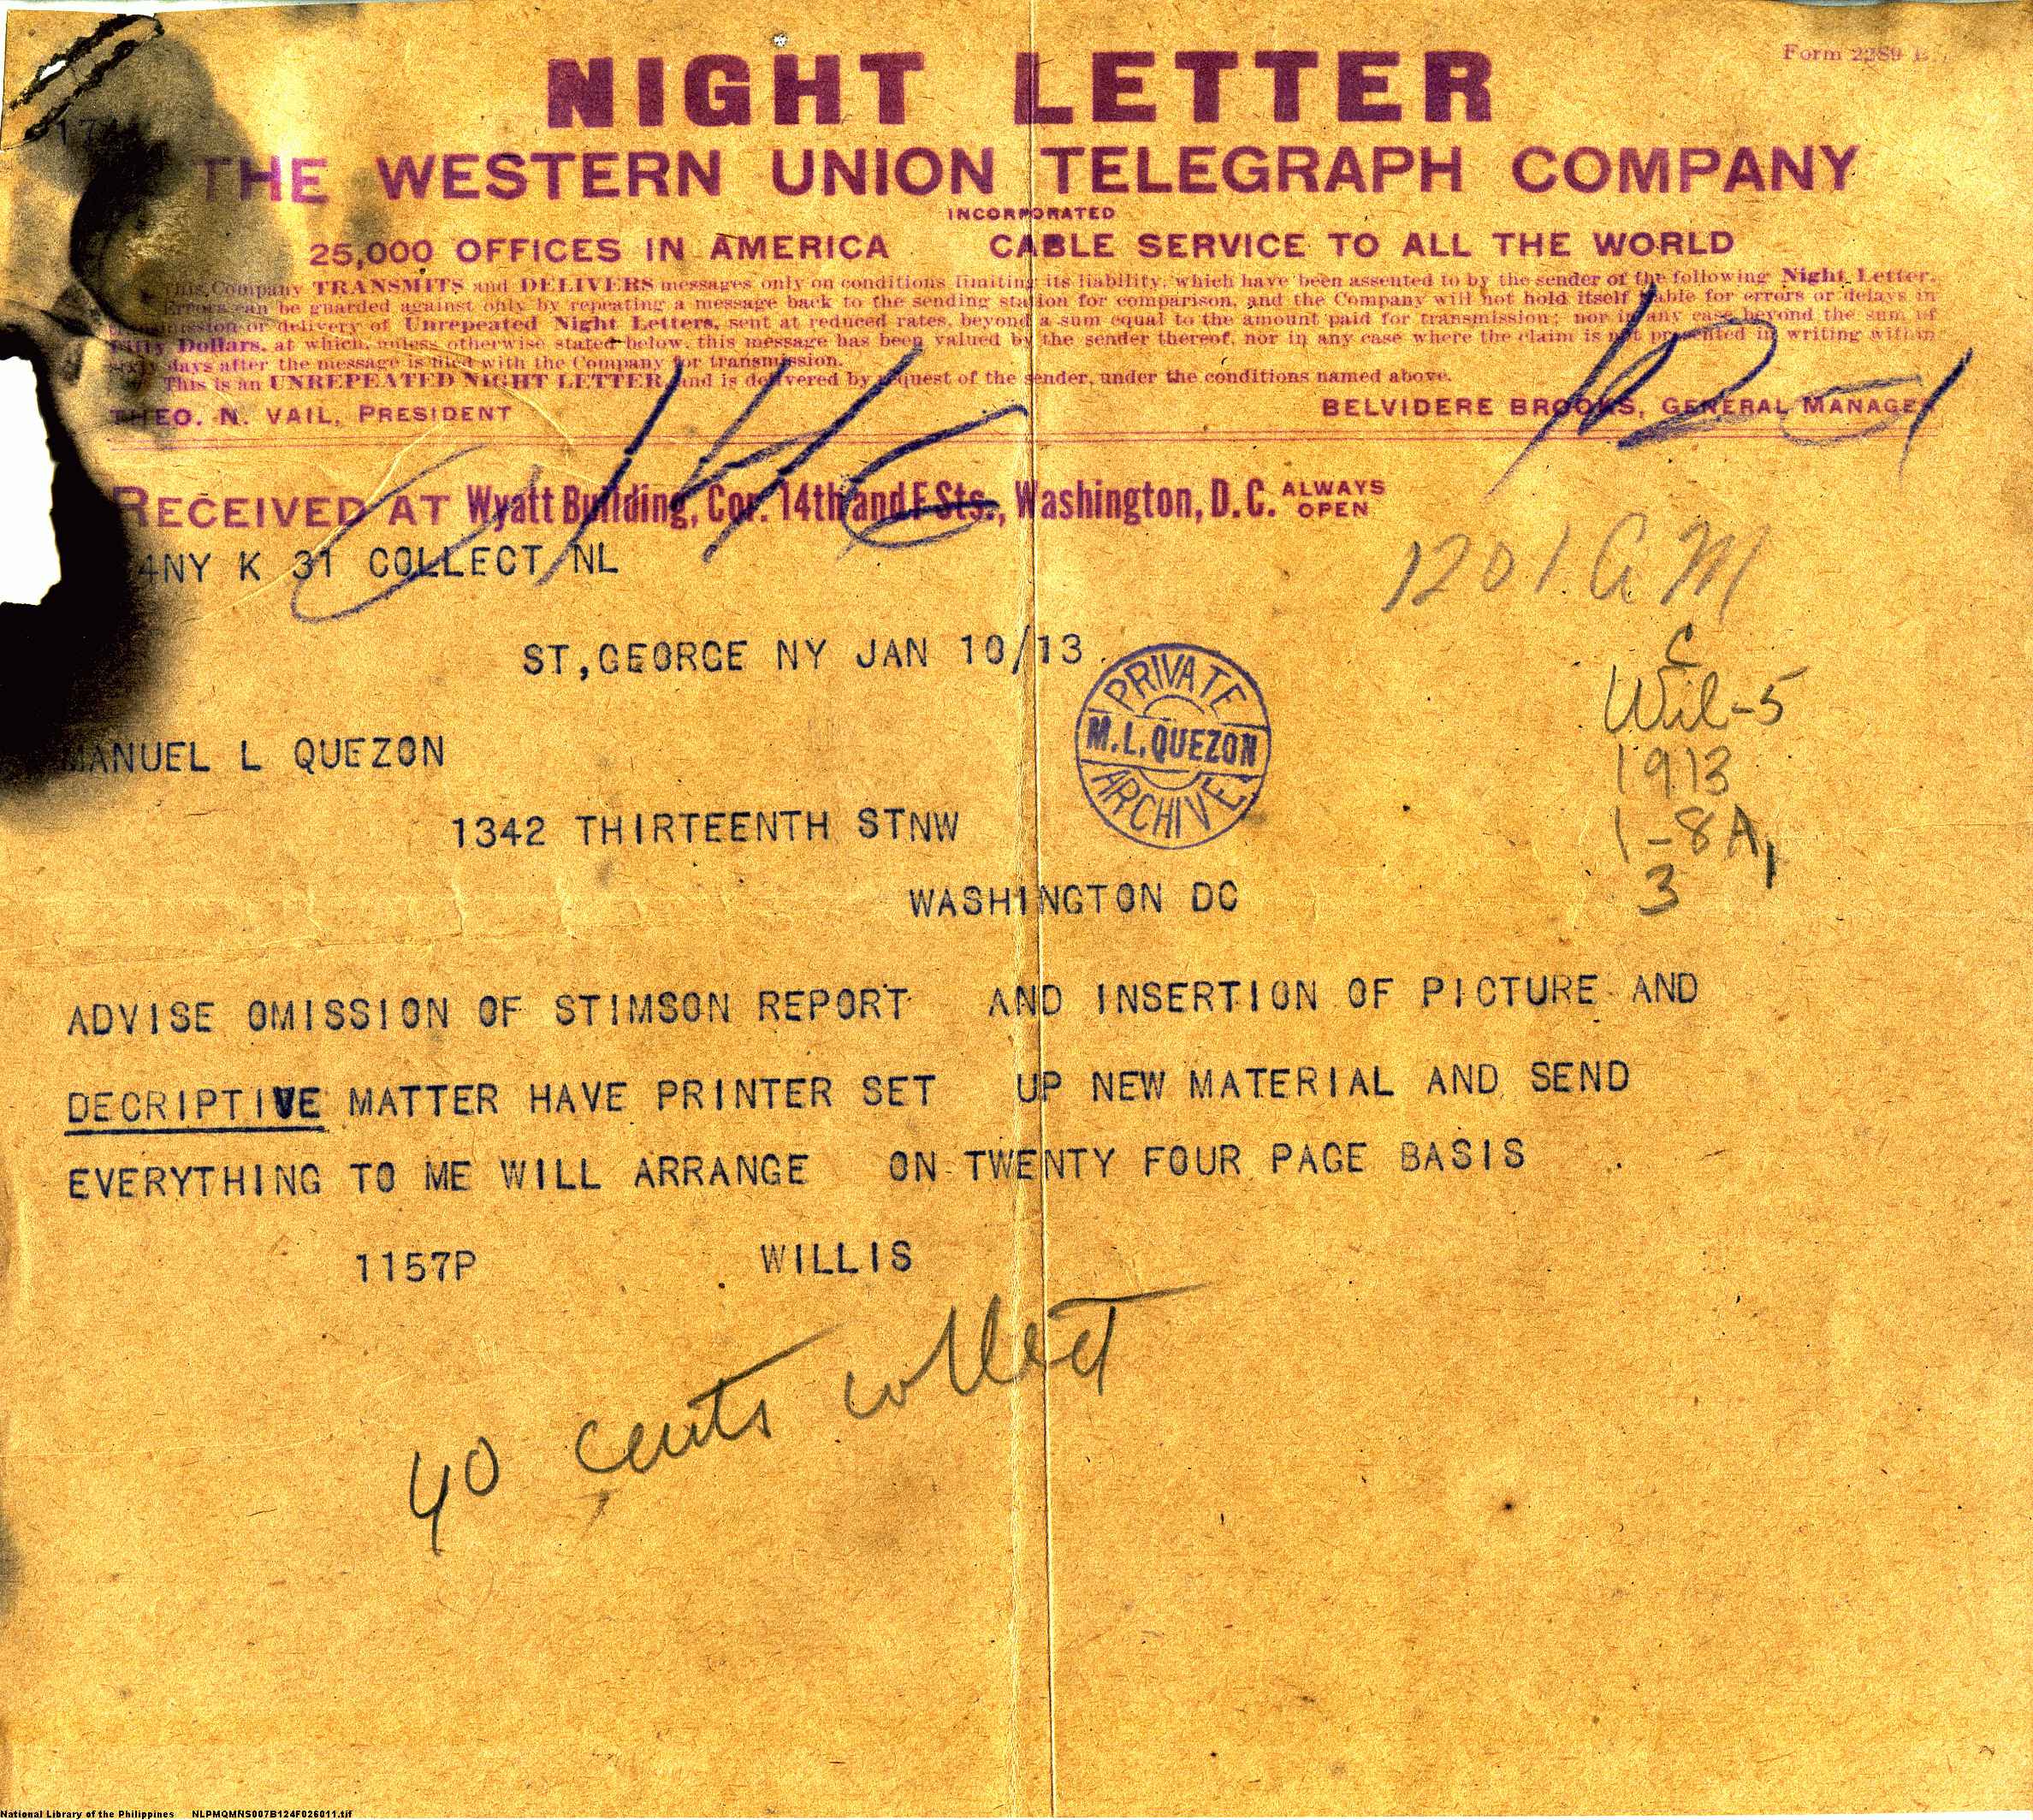 Form 2289 B
NIGHT LETTER
THE WESTERN UNION TELEGRAPH COMPANY
INCORPORATED
25,000 OFFICES IN AMERICA CABLE SERVICE TO ALL THE WORLD
This Company TRANSMITS and DELIVERS messages only on conditions limiting its liability, which have been assented to by the sender of the following Night Letter.
Errors can be guarded against only by repeating a message back to the sending station for comparison, and the Company will not hold itself liable for errors or delays in
transmission or delivery of Unrepeated Night Letters, sent at reduced rates, beyond a sum equal to the amount paid for transmission; nor in any case beyond the sum of
Fifty Dollars, at which, unless otherwise stated below, this message has been valued by the sender thereof, nor in any case where the claim is not presented in writing within
sixty days after the message is filed with the Company for transmission.
This is an UNREPEATED NIGHT LETTER, and is delivered by request of the sender, under the conditions named above.
THEO. N. VAIL, PRESIDENT BELVIDERE BROOKS, GENERAL MANAGER
RECEIVED AT Wyatt Building, Cor. 14th and F Sts., Washington, D.C. ALWAYS OPEN
4NY K 31 COLLECT NL
1201 AM
ST,GEORGE NY JAN 10/13
C
Wil-5
1913
1-8A,
3
PRIVATE
M.L.QUEZON
ARCHIVE
MANUEL L QUEZON
1342 THIRTEENTH STNW
WASHINGTON DC
ADVISE OMISSION OF STIMSON REPORT AND INSERTION OF PICTURE AND
DECRIPTIVE MATTER HAVE PRINTER SET UP NEW MATERIAL AND SEND
EVERYTHING TO ME WILL ARRANGE ON TWENTY FOUR PAGE BASIS
1157P WILLIS
40 cents collect
National Library of the Philippines NLPMQMNS007B124F026011.tif